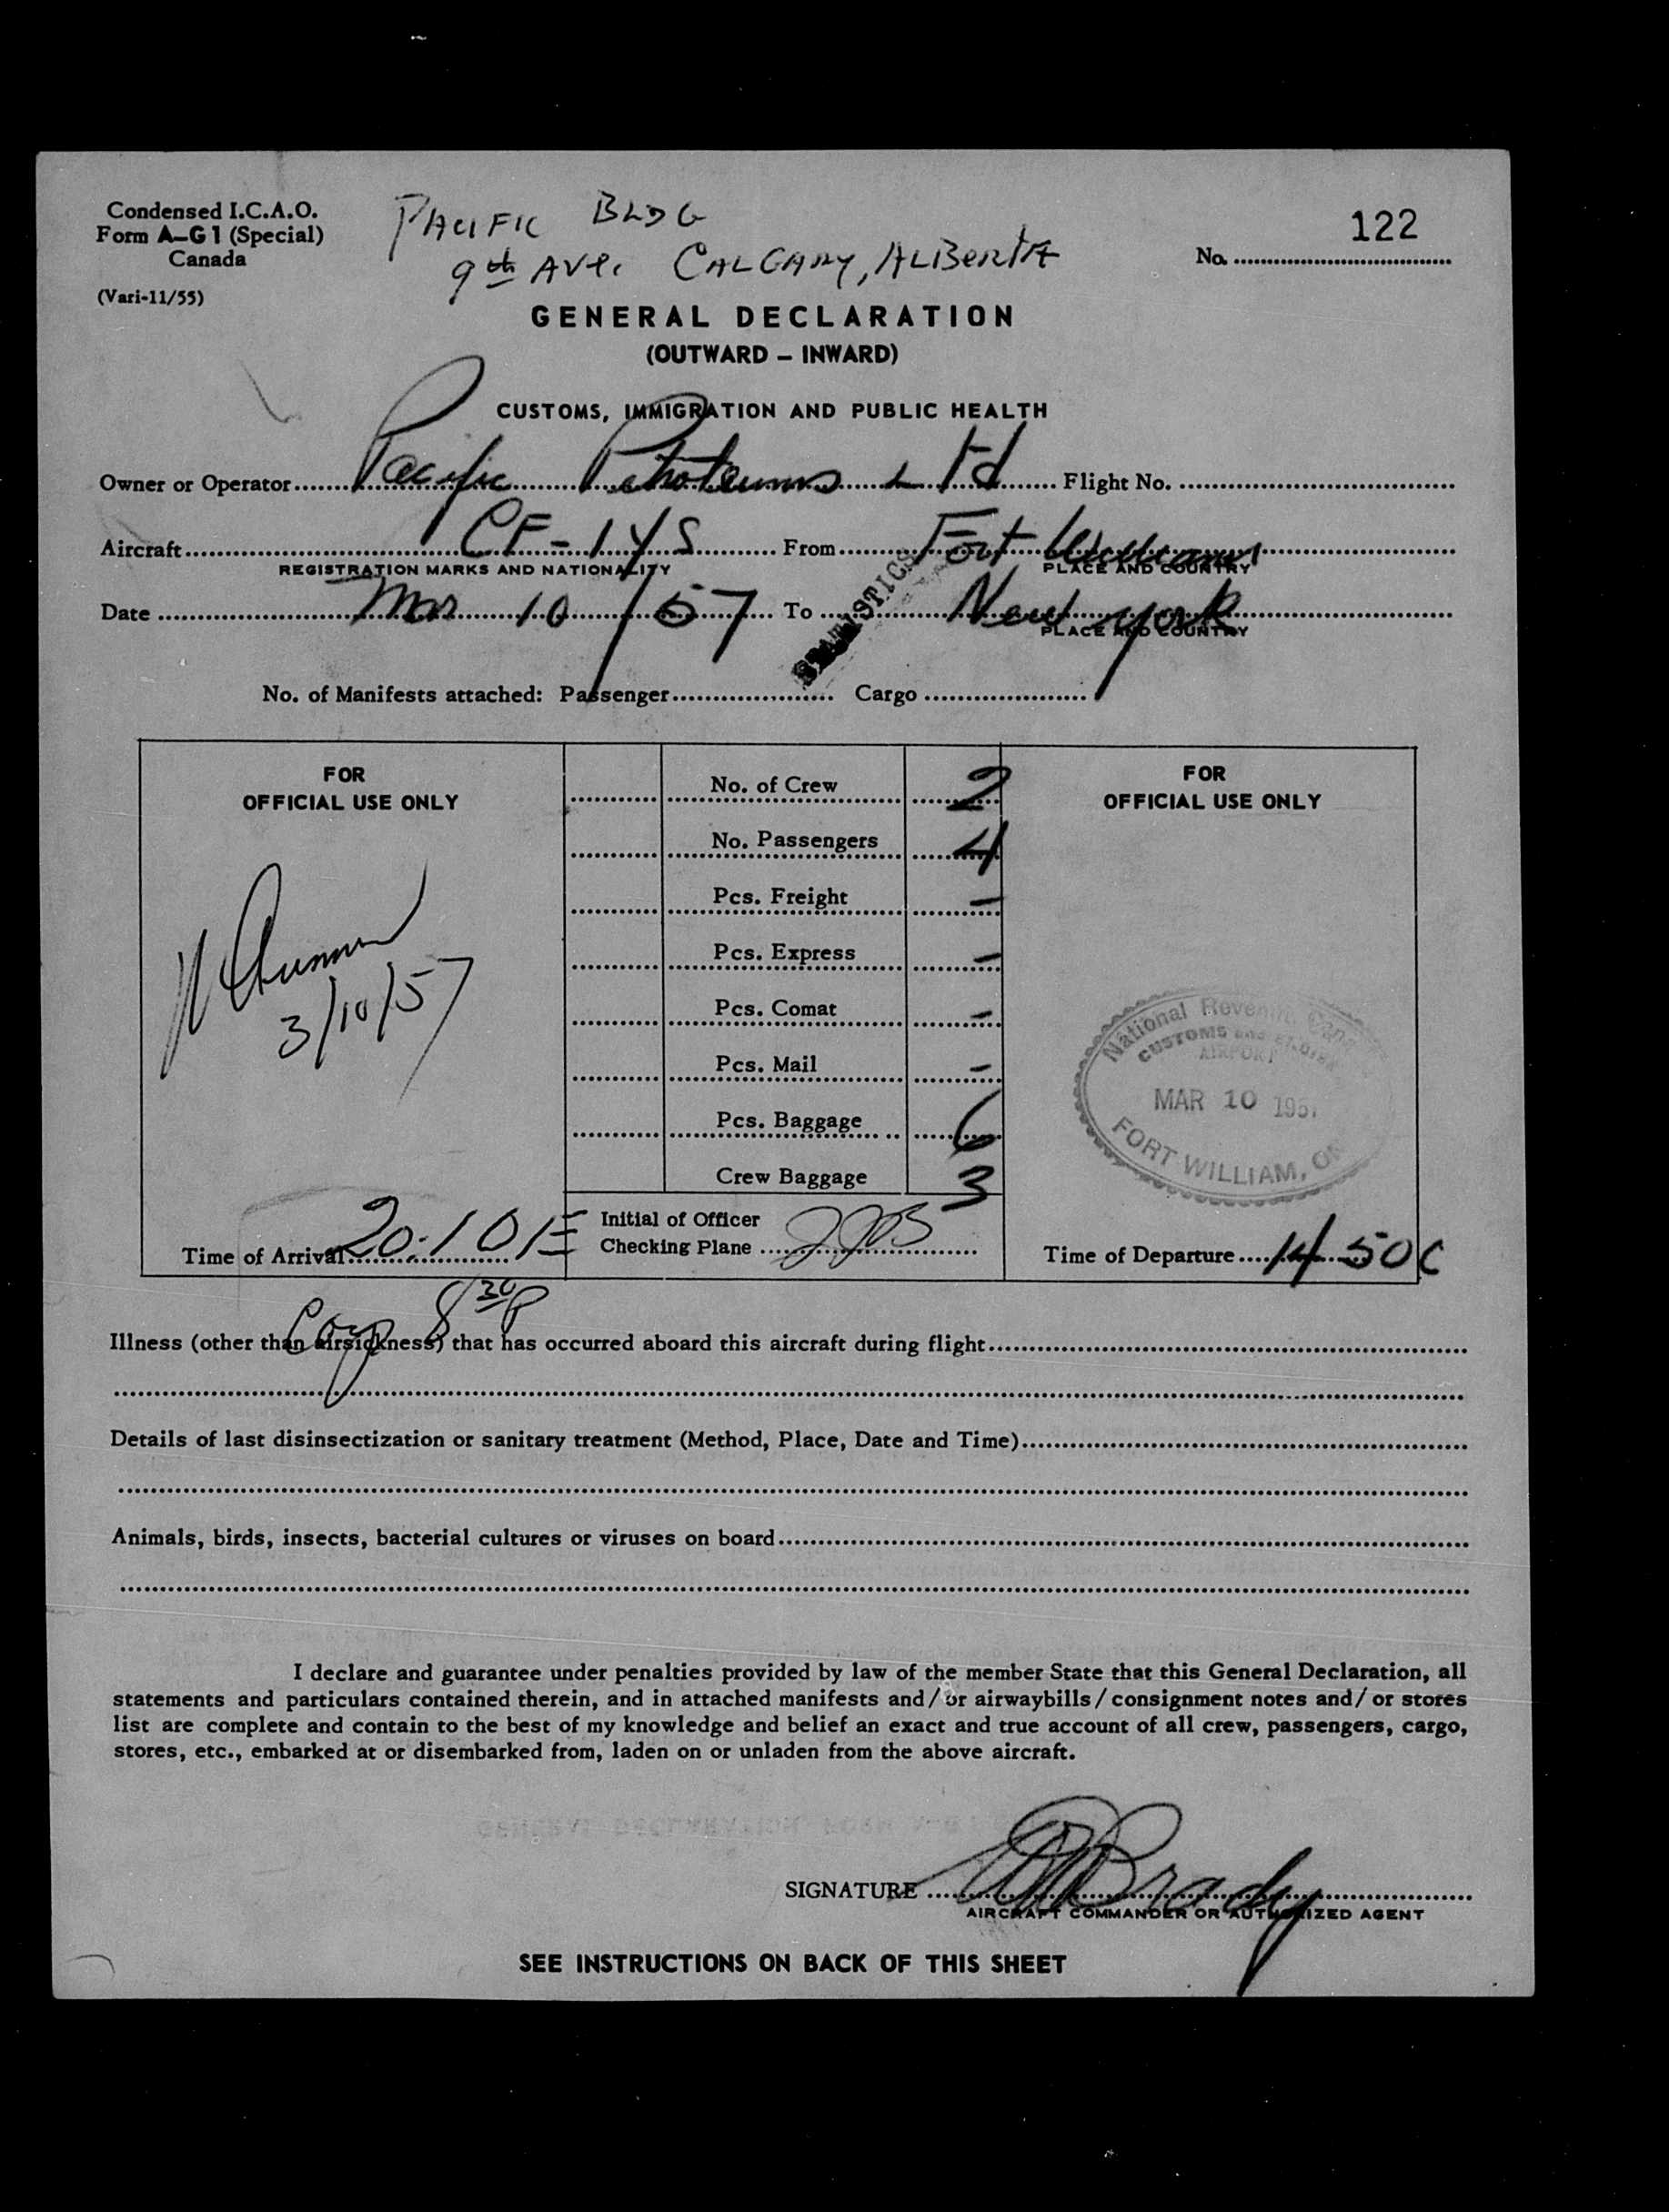 Condensed I.C.A.O.
Form A–G 1 (Special)
Canada
(Vari-11/55)
PACIFIC BLDG
9th AVE. CALGARY, ALBERTA
No. 122
GENERAL DECLARATION
(OUTWARD – INWARD)
CUSTOMS, IMMIGRATION AND PUBLIC HEALTH
Owner or Operator Pacific Petroleums Ltd Flight No.
Aircraft CF-IYS From Fort William
REGISTRATION MARKS AND NATIONALITY PLACE AND COUNTRY
Date Mar 10/57 To New York
PLACE AND COUNTRY
STATISTICS
No. of Manifests attached: Passenger Cargo
FOR
OFFICIAL USE ONLY
3/10/57
Time of Arrival 20:10 E
No. of Crew 2
No. Passengers 4
Pcs. Freight –
Pcs. Express –
Pcs. Comat –
Pcs. Mail –
Pcs. Baggage 6
Crew Baggage 3
Initial of Officer
Checking Plane
FOR
OFFICIAL USE ONLY
National Revenue,
CUSTOMS and
AIRPORT
MAR 10 1957
FORT WILLIAM,
Time of Departure 14 50 C
8 30 P
Illness (other than airsickness) that has occurred aboard this aircraft during flight
Details of last disinsectization or sanitary treatment (Method, Place, Date and Time)
Animals, birds, insects, bacterial cultures or viruses on board
I declare and guarantee under penalties provided by law of the member State that this General Declaration, all
statements and particulars contained therein, and in attached manifests and/or airwaybills/consignment notes and/or stores
list are complete and contain to the best of my knowledge and belief an exact and true account of all crew, passengers, cargo,
stores, etc., embarked at or disembarked from, laden on or unladen from the above aircraft.
SIGNATURE Brady
AIRCRAFT COMMANDER OR AUTHORIZED AGENT
SEE INSTRUCTIONS ON BACK OF THIS SHEET